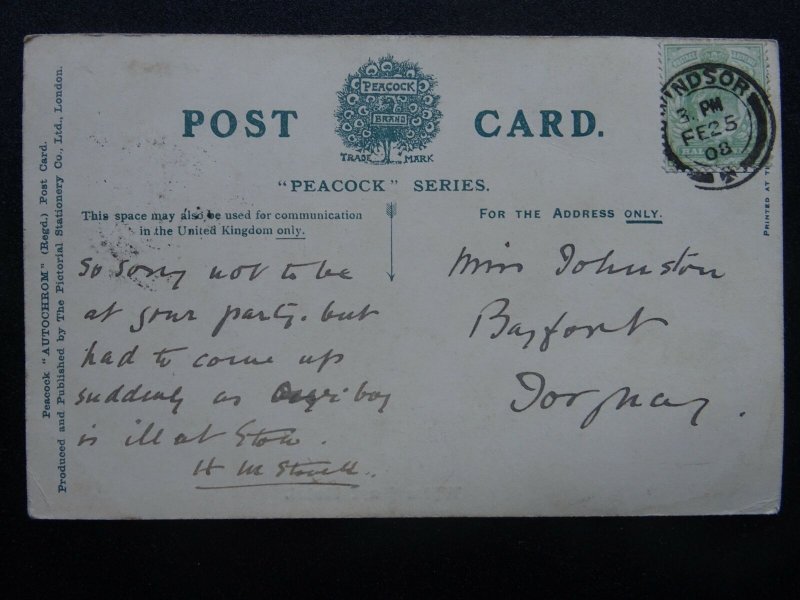 Peacock "AUTOCHROM" (Regd.) Post Card.
Produced and Published by The Pictorial Stationery Co., Ltd., London.
POST CARD.
PEACOCK
BRAND
TRADE MARK
"PEACOCK" SERIES.
This space may also be used for communication
in the United Kingdom only.
FOR THE ADDRESS ONLY.
WINDSOR
3. PM
FE 25
08
PRINTED AT
So sorry not to be
at your party. but
had to come up
suddenly as boy
is ill at Eton.
H M
Miss Johnston
Bayfort